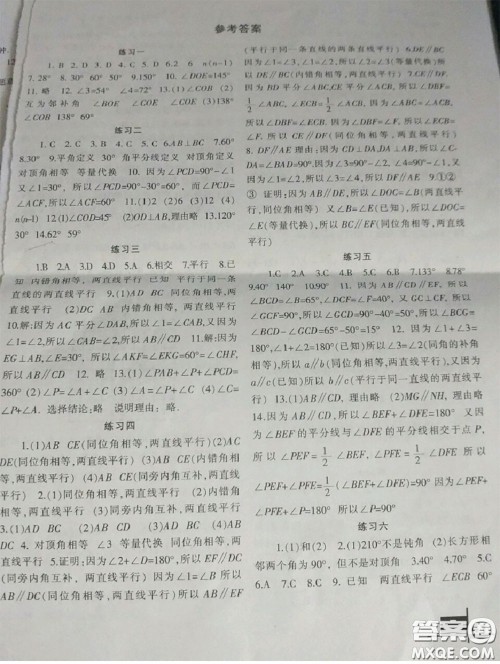 参考答案
练习一
1.B 2.D 3.D 4.C 5.D 6.2 6 n(n-1)
7.28° 8.30° 60° 50° 9.150° 10.∠DOE=145°
11.略 12.∠3=54° ∠4=72° 13.(1)∠COB (2)
互为邻补角 ∠BOE ∠COE ∠COE (3)138°
∠COB 138° 69°
练习二
1.C 2.C 3.B 4.D 5.C 6.AB⊥BC 7.60°
8.30° 9.平角定义 30° 角平分线定义 对顶角定义
对顶角相等 等量代换 10.因为∠PCD=90°-∠1
又∠1=30°,所以∠PCD=90°-30°=60°,而∠PCD=
∠ACF,所以∠ACF=60° 11.(1)2 (2)6 (3)12 (4)
n(n-1) 12.(1)∠COD=45° (2)OD⊥AB,理由略 13.120°
30° 14.62° 59°
练习三
1.B 2.A 3.D 4.D 5.A 6.相交 7.平行 8.已
知 内错角相等,两直线平行 已知 平行于同一条
直线的两直线平行 9.(1)AD BC 同位角相等,两
直线平行 (2)DC AB 内错角相等,两直线平行
10.解:因为AC平分∠DAB,所以∠1=∠CAB,又因为
∠1=∠2,所以∠CAB=∠2,所以AB∥CD 11.解:因为
EG⊥AB,∠E=30°,所以∠AKF=∠EKG=60°=∠CHF,
所以AB∥CD 12.略 13.(1)∠PAB+∠P+∠PCD=
360° (2)∠P=∠A+∠C (3)∠P+∠A=∠C (4)∠C=
∠P+∠A. 选择结论:略 说明理由:略.
练习四
1.(1)AB CE(同位角相等,两直线平行) (2)AC
DE(同位角相等,两直线平行) (3)AB CE(内错角
相等,两直线平行) (4)AB CE(同旁内角互补,两直线
平行) 2.(1)同位角相等,两直线平行 (2)内错角
相等,两直线平行 (3)同旁内角互补,两直线平行
3.(1)AD BC (2)AD BC (3)AB DC (4)AB
DC 4.对顶角相等 ∠3 等量代换 同位角相等,两
直线平行 5.证明:因为∠2+∠D=180°,所以EF∥DC
(同旁内角互补,两直线平行) 因为∠1=∠B 所以
AB∥DC(同位角相等,两直线平行) 所以AB∥EF
(平行于同一条直线的两条直线平行) 6.DE∥BC
因为∠1=∠2,∠1=∠3,所以∠2=∠3(等量代换)所
以DE∥BC(内错角相等,两直线平行) 7.CE∥DF.
因为BD平分∠ABC,CE平分∠ACB,所以∠DBF=
1/2∠ABC,∠ECB=1/2∠ACB,因为∠ABC=∠ACB,
所以∠DBF=∠ECB.因为∠DBF=∠F,所以∠ECB=
∠F,所以CE∥DF(同位角相等,两直线平行)
8.DF∥AE 理由:因为CD⊥DA,DA⊥AB,所以∠C-
DA=∠BAD=90°,因为∠3=90°-∠2,∠4=90°-∠1,又
因为∠1=∠2,所以∠3=∠4,所以DF∥AE 9.①②
③ 证明:因为AB∥DE,所以∠DOC=∠B(两直线平
行,同位角相等) 又∠B=∠E(已知),所以∠DOC=
∠E(等量代换),所以BC∥EF(同位角相等,两直线
平行)
练习五
1.C 2.A 3.C 4.A 5.B 6.B 7.133° 8.78°
9.40° 140° 10.90° 11.因为AB∥CD∥EF,所以
∠BCD=∠B=65°,∠DCF=∠F=40°,又GC⊥CF,所以
∠GCD=90°-∠DCF=90°-40°=50°,所以∠BCG=
∠BCD-∠GCD=65°-50°=15° 12.因为∠1+∠3=
180°,∠2+∠1=180°(已知) 所以∠2=∠3(同角的补
角相等),所以a∥b(同位角相等,两直线平行),又因为
a∥c(已知)所以b∥c(平行于同一直线的两直线平
行) 13.(1)AB∥CD,理由略 (2)MG∥NH,理由略
14.因为AB∥CD,所以∠BEF+∠DFE=180° 又因
为∠BEF的平分线与∠DFE的平分线相交于点P,
所以∠PEF=1/2∠BEF,∠PFE=1/2∠DFE 所以
∠PEF+∠PFE=1/2(∠BEF+∠DFE)=90° 因为∠PEF+
∠PFE+∠P=180° 所以∠P=90°
练习六
1.(1)和(2) 2.(1)210°不是钝角 (2)同旁内角相
6.A 7.C 8.C 9.已知 两直线平行 ∠ECB 60°
答案圈
MXQE.COM